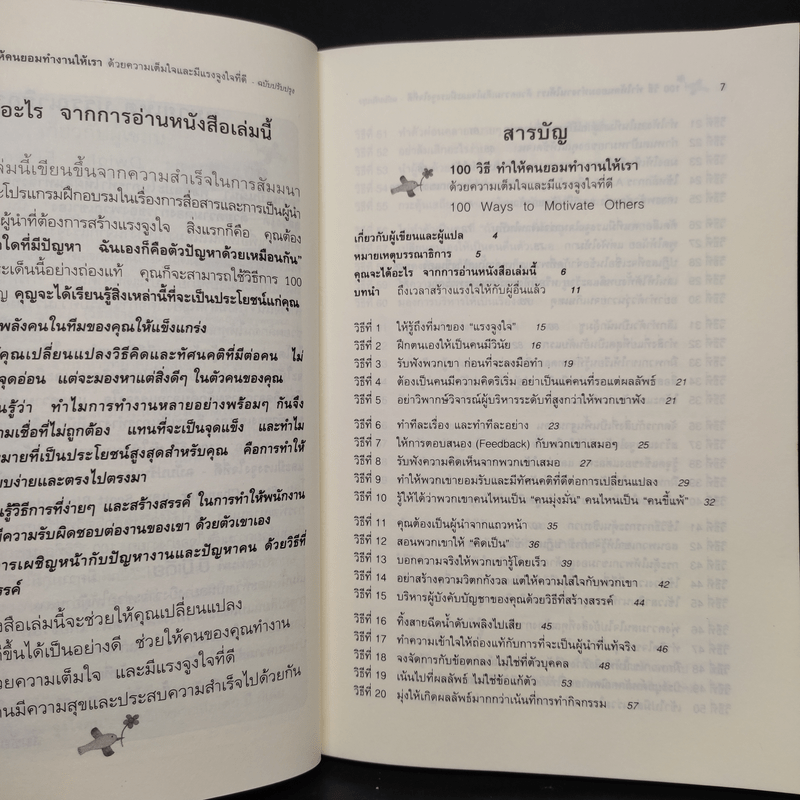 ให้คนยอมทำงานให้เรา ด้วยความเต็มใจและมีแรงจูงใจที่ดี - ฉบับปรับปรุง
อะไร จากการอ่านหนังสือเล่มนี้
ล่มนี้เขียนขึ้นจากความสำเร็จในการสัมมนา
ะโปรแกรมฝึกอบรมในเรื่องการสื่อสารและการเป็นผู้นำ
ผู้นำที่ต้องการสร้างแรงจูงใจ สิ่งแรกก็คือ คุณต้อง
ใดที่มีปัญหา ฉันเองก็คือตัวปัญหาด้วยเหมือนกัน"
ระเด็นนี้อย่างถ่องแท้ คุณก็จะสามารถใช้วิธีการ 100
คุญจะได้เรียนรู้สิ่งเหล่านี้ที่จะเป็นประโยชน์แก่คุณ
พลังคนในทีมของคุณให้แข็งแกร่ง
คุณเปลี่ยนแปลงวิธีคิดและทัศนคติที่มีต่อคน ไม่
จุดอ่อน แต่จะมองหาแต่สิ่งดีๆ ในตัวคนของคุณ
นรู้ว่า ทำไมการทำงานหลายอย่างพร้อมๆ กันจึง
ามเชื่อที่ไม่ถูกต้อง แทนที่จะเป็นจุดแข็ง และทำไม
มายที่เป็นประโยชน์สูงสุดสำหรับคุณ คือการทำให้
บบง่ายและตรงไปตรงมา
นรู้วิธีการที่ง่ายๆ และสร้างสรรค์ ในการทำให้พนักงาน
มีความรับผิดชอบต่องานของเขา ด้วยตัวเขาเอง
การเผชิญหน้ากับปัญหางานและปัญหาคน ด้วยวิธีที่
รรค์
งสือเล่มนี้จะช่วยให้คุณเปลี่ยนแปลง
ดีขึ้นได้เป็นอย่างดี ช่วยให้คนของคุณทำงาน
วยความเต็มใจ และมีแรงจูงใจที่ดี
านมีความสุขและประสบความสำเร็จไปด้วยกัน
7
สารบัญ
100 วิธี ทำให้คนยอมทำงานให้เรา
ด้วยความเต็มใจและมีแรงจูงใจที่ดี
100 Ways to Motivate Others
เกี่ยวกับผู้เขียนและผู้แปล 4
หมายเหตุบรรณาธิการ 5
คุณจะได้อะไร จากการอ่านหนังสือเล่มนี้ 6
บทนำ ถึงเวลาสร้างแรงใจให้กับผู้อื่นแล้ว 11
วิธีที่ 1 ให้รู้ถึงที่มาของ "แรงจูงใจ" 15
วิธีที่ 2 ฝึกตนเองให้เป็นคนมีวินัย 16
วิธีที่ 3 รับฟังพวกเขา ก่อนที่จะลงมือทำ 19
วิธีที่ 4 ต้องเป็นคนมีความคิดริเริ่ม อย่าเป็นแค่คนที่รอแต่ผลลัพธ์ 21
วิธีที่ 5 อย่าวิพากษ์วิจารณ์ผู้บริหารระดับที่สูงกว่าให้พวกเขาฟัง 21
วิธีที่ 6 ทำทีละเรื่อง และทำทีละอย่าง 23
วิธีที่ 7 ให้การตอบสนอง (Feedback) กับพวกเขาเสมอๆ 25
วิธีที่ 8 รับฟังความคิดเห็นจากพวกเขาเสมอ 27
วิธีที่ 9 ทำให้พวกเขายอมรับและมีทัศนคติที่ดีต่อการเปลี่ยนแปลง 29
วิธีที่ 10 รู้ให้ได้ว่าพวกเขาคนไหนเป็น "คนมุ่งมั่น" คนไหนเป็น "คนขี้แพ้" 32
วิธีที่ 11 คุณต้องเป็นผู้นำจากแถวหน้า 35
วิธีที่ 12 สอนพวกเขาให้ "คิดเป็น" 36
วิธีที่ 13 บอกความจริงให้พวกเขารู้โดยเร็ว 39
วิธีที่ 14 อย่าสร้างความวิตกกังวล แต่ให้ความใส่ใจกับพวกเขา 42
วิธีที่ 15 บริหารผู้บังคับบัญชาของคุณด้วยวิธีที่สร้างสรรค์ 44
วิธีที่ 16 ทิ้งสายฉีดน้ำดับเพลิงไปเสีย 45
วิธีที่ 17 ทำความเข้าใจให้ถ่องแท้กับการที่จะเป็นผู้นำที่แท้จริง 46
วิธีที่ 18 จงจัดการกับข้อตกลง ไม่ใช่ที่ตัวบุคคล 48
วิธีที่ 19 เน้นไปที่ผลลัพธ์ ไม่ใช่ข้อแก้ตัว 53
วิธีที่ 20 มุ่งให้เกิดผลลัพธ์มากกว่าเน้นที่การทำกิจกรรม 57